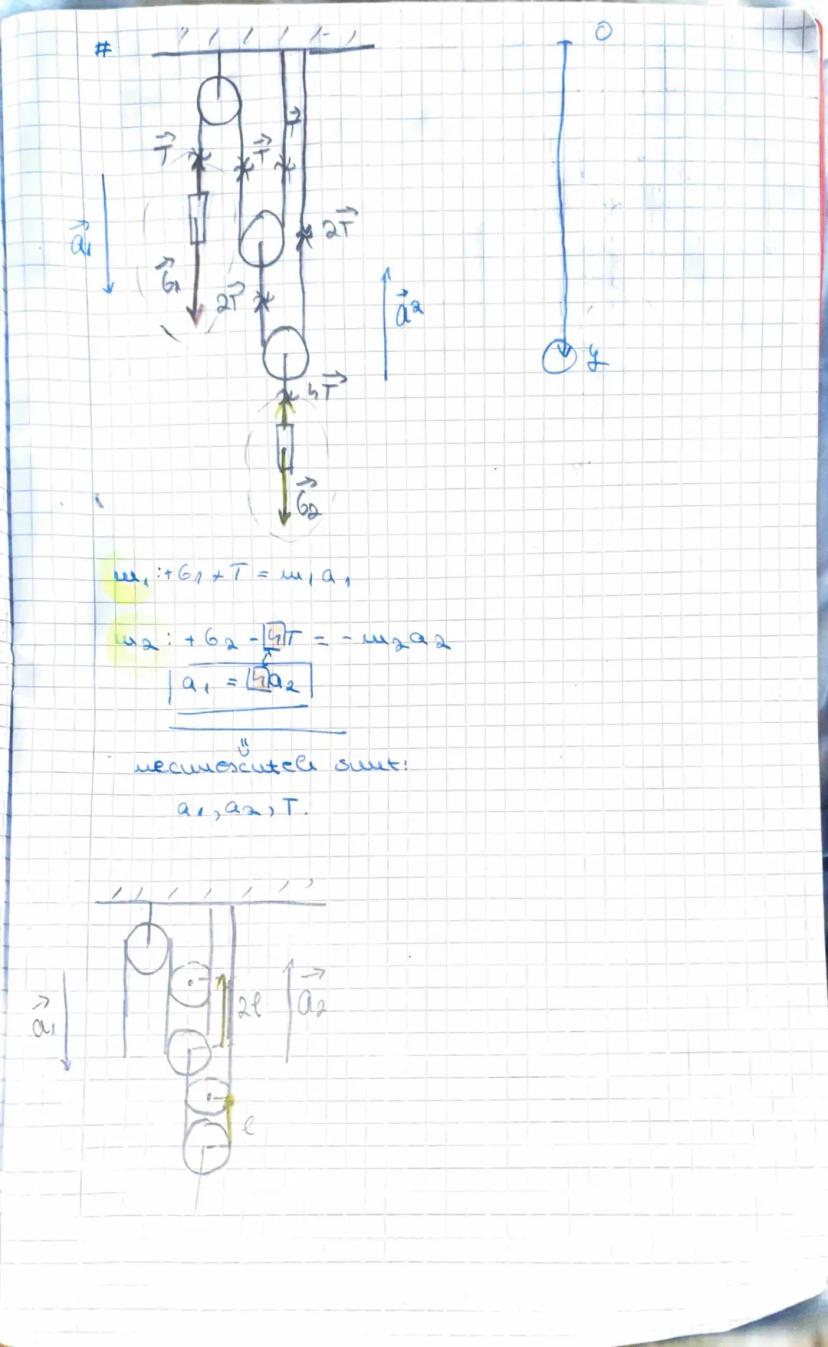 #
O
T⃗ T⃗ T⃗
a⃗₁
2T⃗
G⃗₁
2T⃗
a⃗₂
y
4T⃗
G⃗₂
m₁: +G₁ + T = m₁a₁
m₂: +G₂ - 4T = -m₂a₂
a₁ = 4a₂
⇓
necunoscutele sunt:
a₁, a₂, T.
a⃗₁
2l
a⃗₂
l